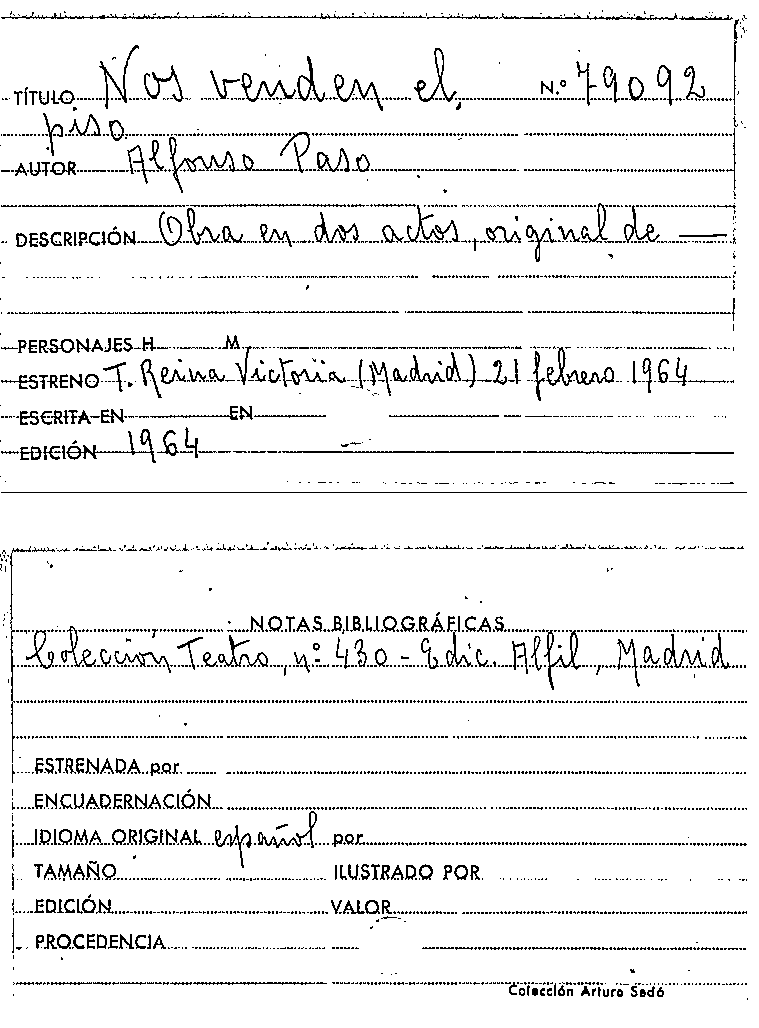 TÍTULO Nos venden el N.º 79092
piso
AUTOR Alfonso Paso
DESCRIPCIÓN Obra en dos actos, original de —
PERSONAJES H M
ESTRENO T. Reina Victoria (Madrid) 21 febrero 1964
ESCRITA EN EN
EDICIÓN 1964
NOTAS BIBLIOGRÁFICAS
Colección Teatro, nº 430 - Edic. Alfil, Madrid
ESTRENADA por
ENCUADERNACIÓN
IDIOMA ORIGINAL español por
TAMAÑO ILUSTRADO POR
EDICIÓN VALOR
PROCEDENCIA
Colección Arturo Sedó